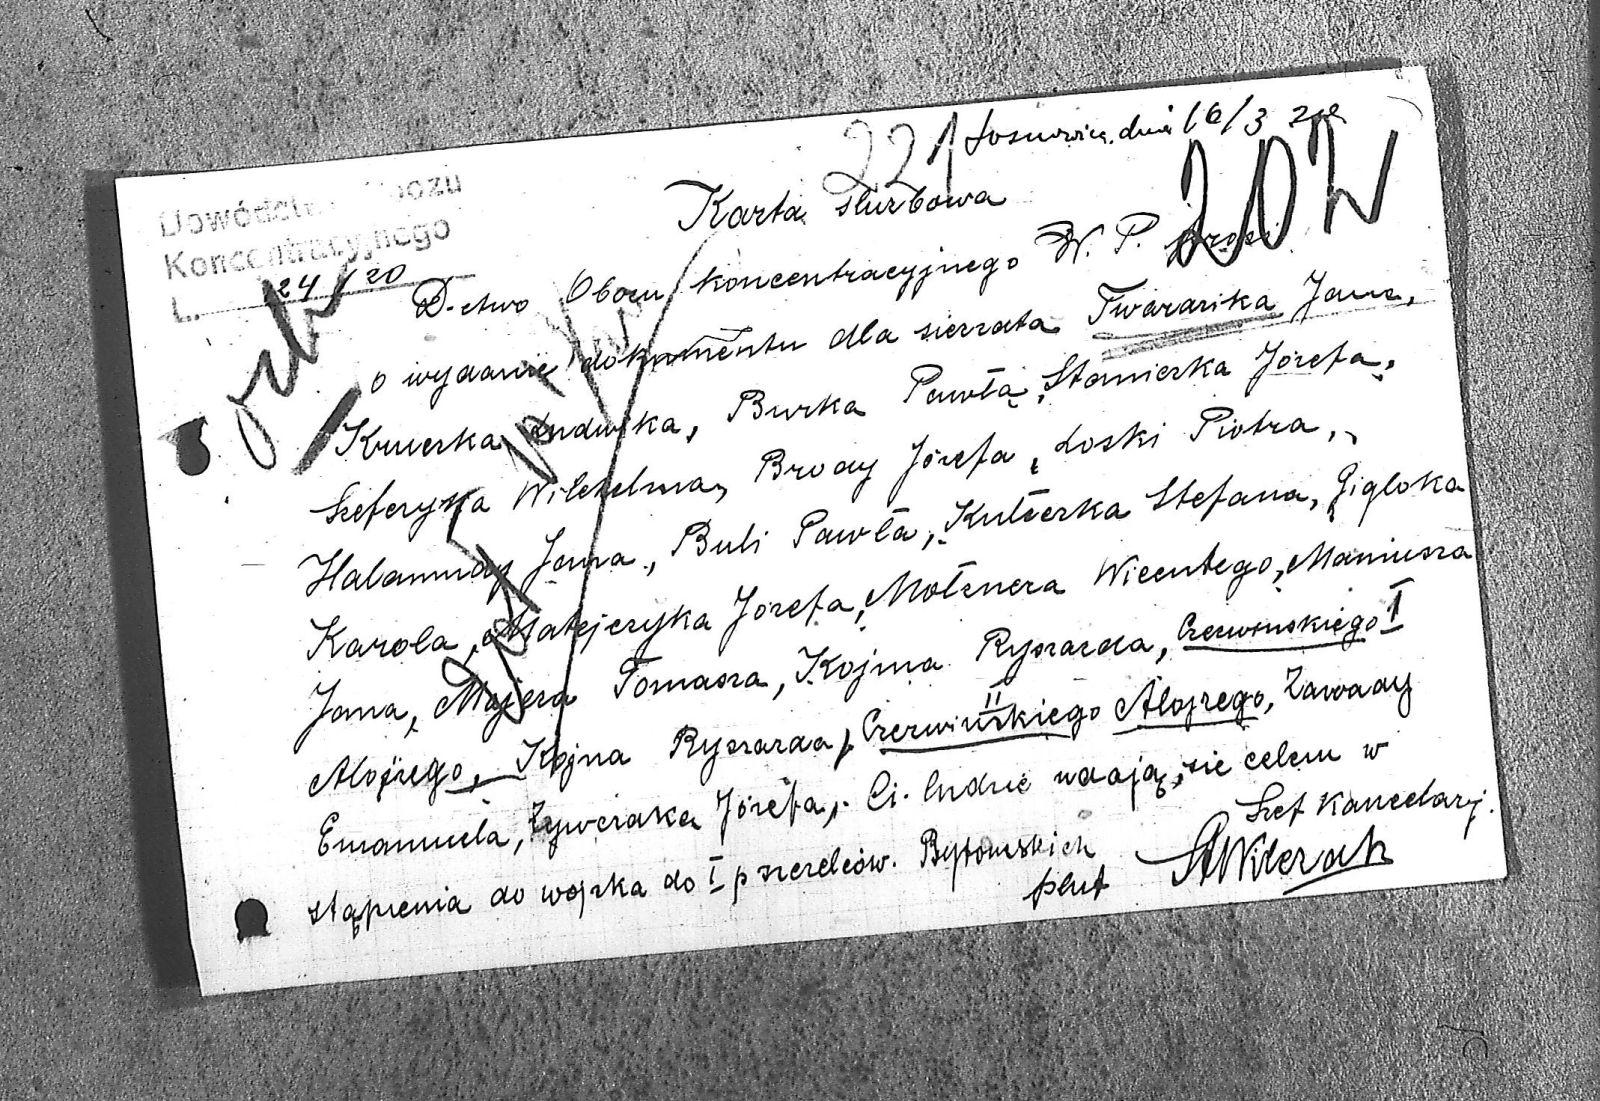 221 Sosnowiec, dnia 16/3 20
202
Dowództwo Obozu
Koncentracyjnego
L. 24/20
Karta służbowa
D-ctwo Obozu koncentracyjnego W. P. prosi
o wydanie dokumentu dla sierzata Twararika Jana,
Kruerka Ludwika, Burka Pawła, Stanierka Józefa,
Szefczyka Wilchelma, Brody Józefa, Łoski Piotra,
Halamudy Jana, Buli Pawła, Kulterka Stefana, Gigloka
Karola, Matejczyka Józefa, Mołznera Wicentego, Maniusza
Jana, Majera Tomasza, Kojma Ryszarda, Czerwinskiego I
Alojzego, Kojna Ryszarda, Czerwińskiego II Alojzego, Zawady
Emanuela, Żywczaka Józefa,. Ci. ludzie udają się celem w
stąpienia do wojska do I p szczelców. Bytomskich
Szef Kancelarj.
plut